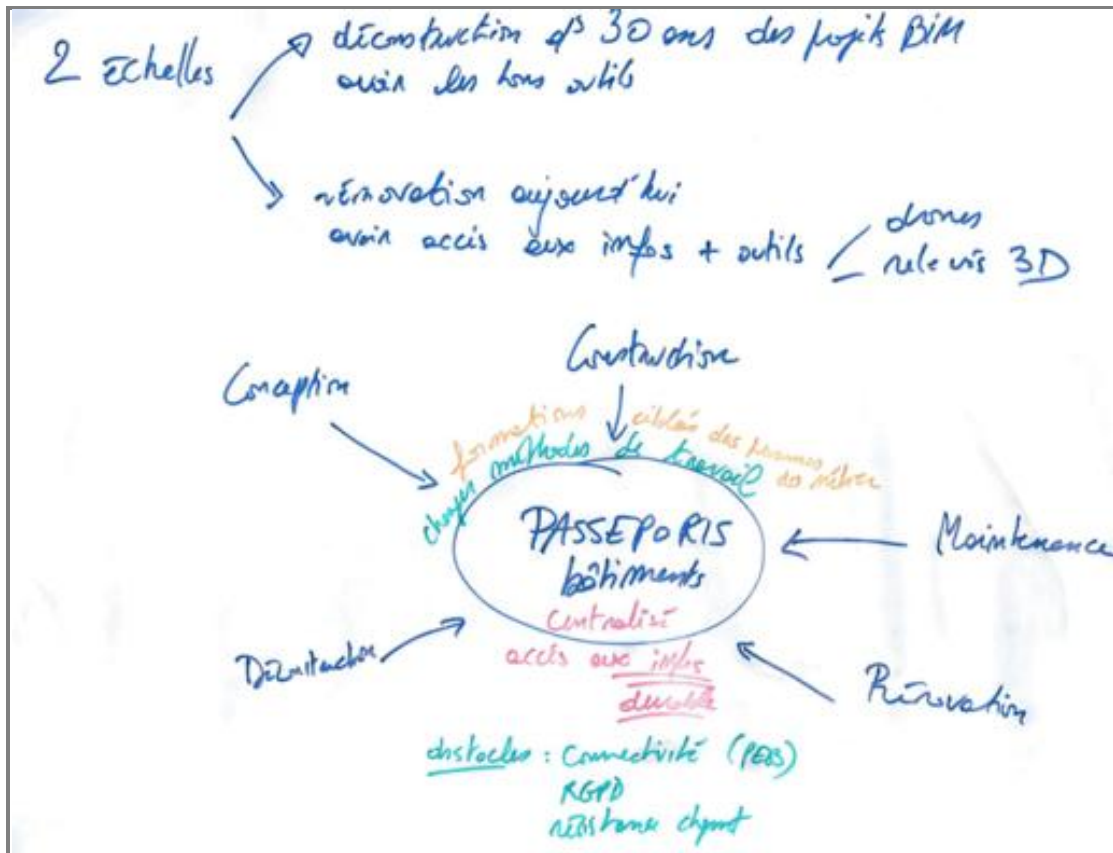 2 échelles
déconstruction ds 30 ans des projets BIM
avoir les bons outils
rénovation aujourd'hui
avoir accès aux infos + outils
drones
relevés 3D
Construction
Conception
formations ciblées des personnes
changer méthodes de travail
PASSEPORTS
bâtiments
Maintenance
centralisé
accès aux infos
durable
Déconstruction
Rénovation
obstacles : Connectivité (PEB)
RGPD
résistance chgmt